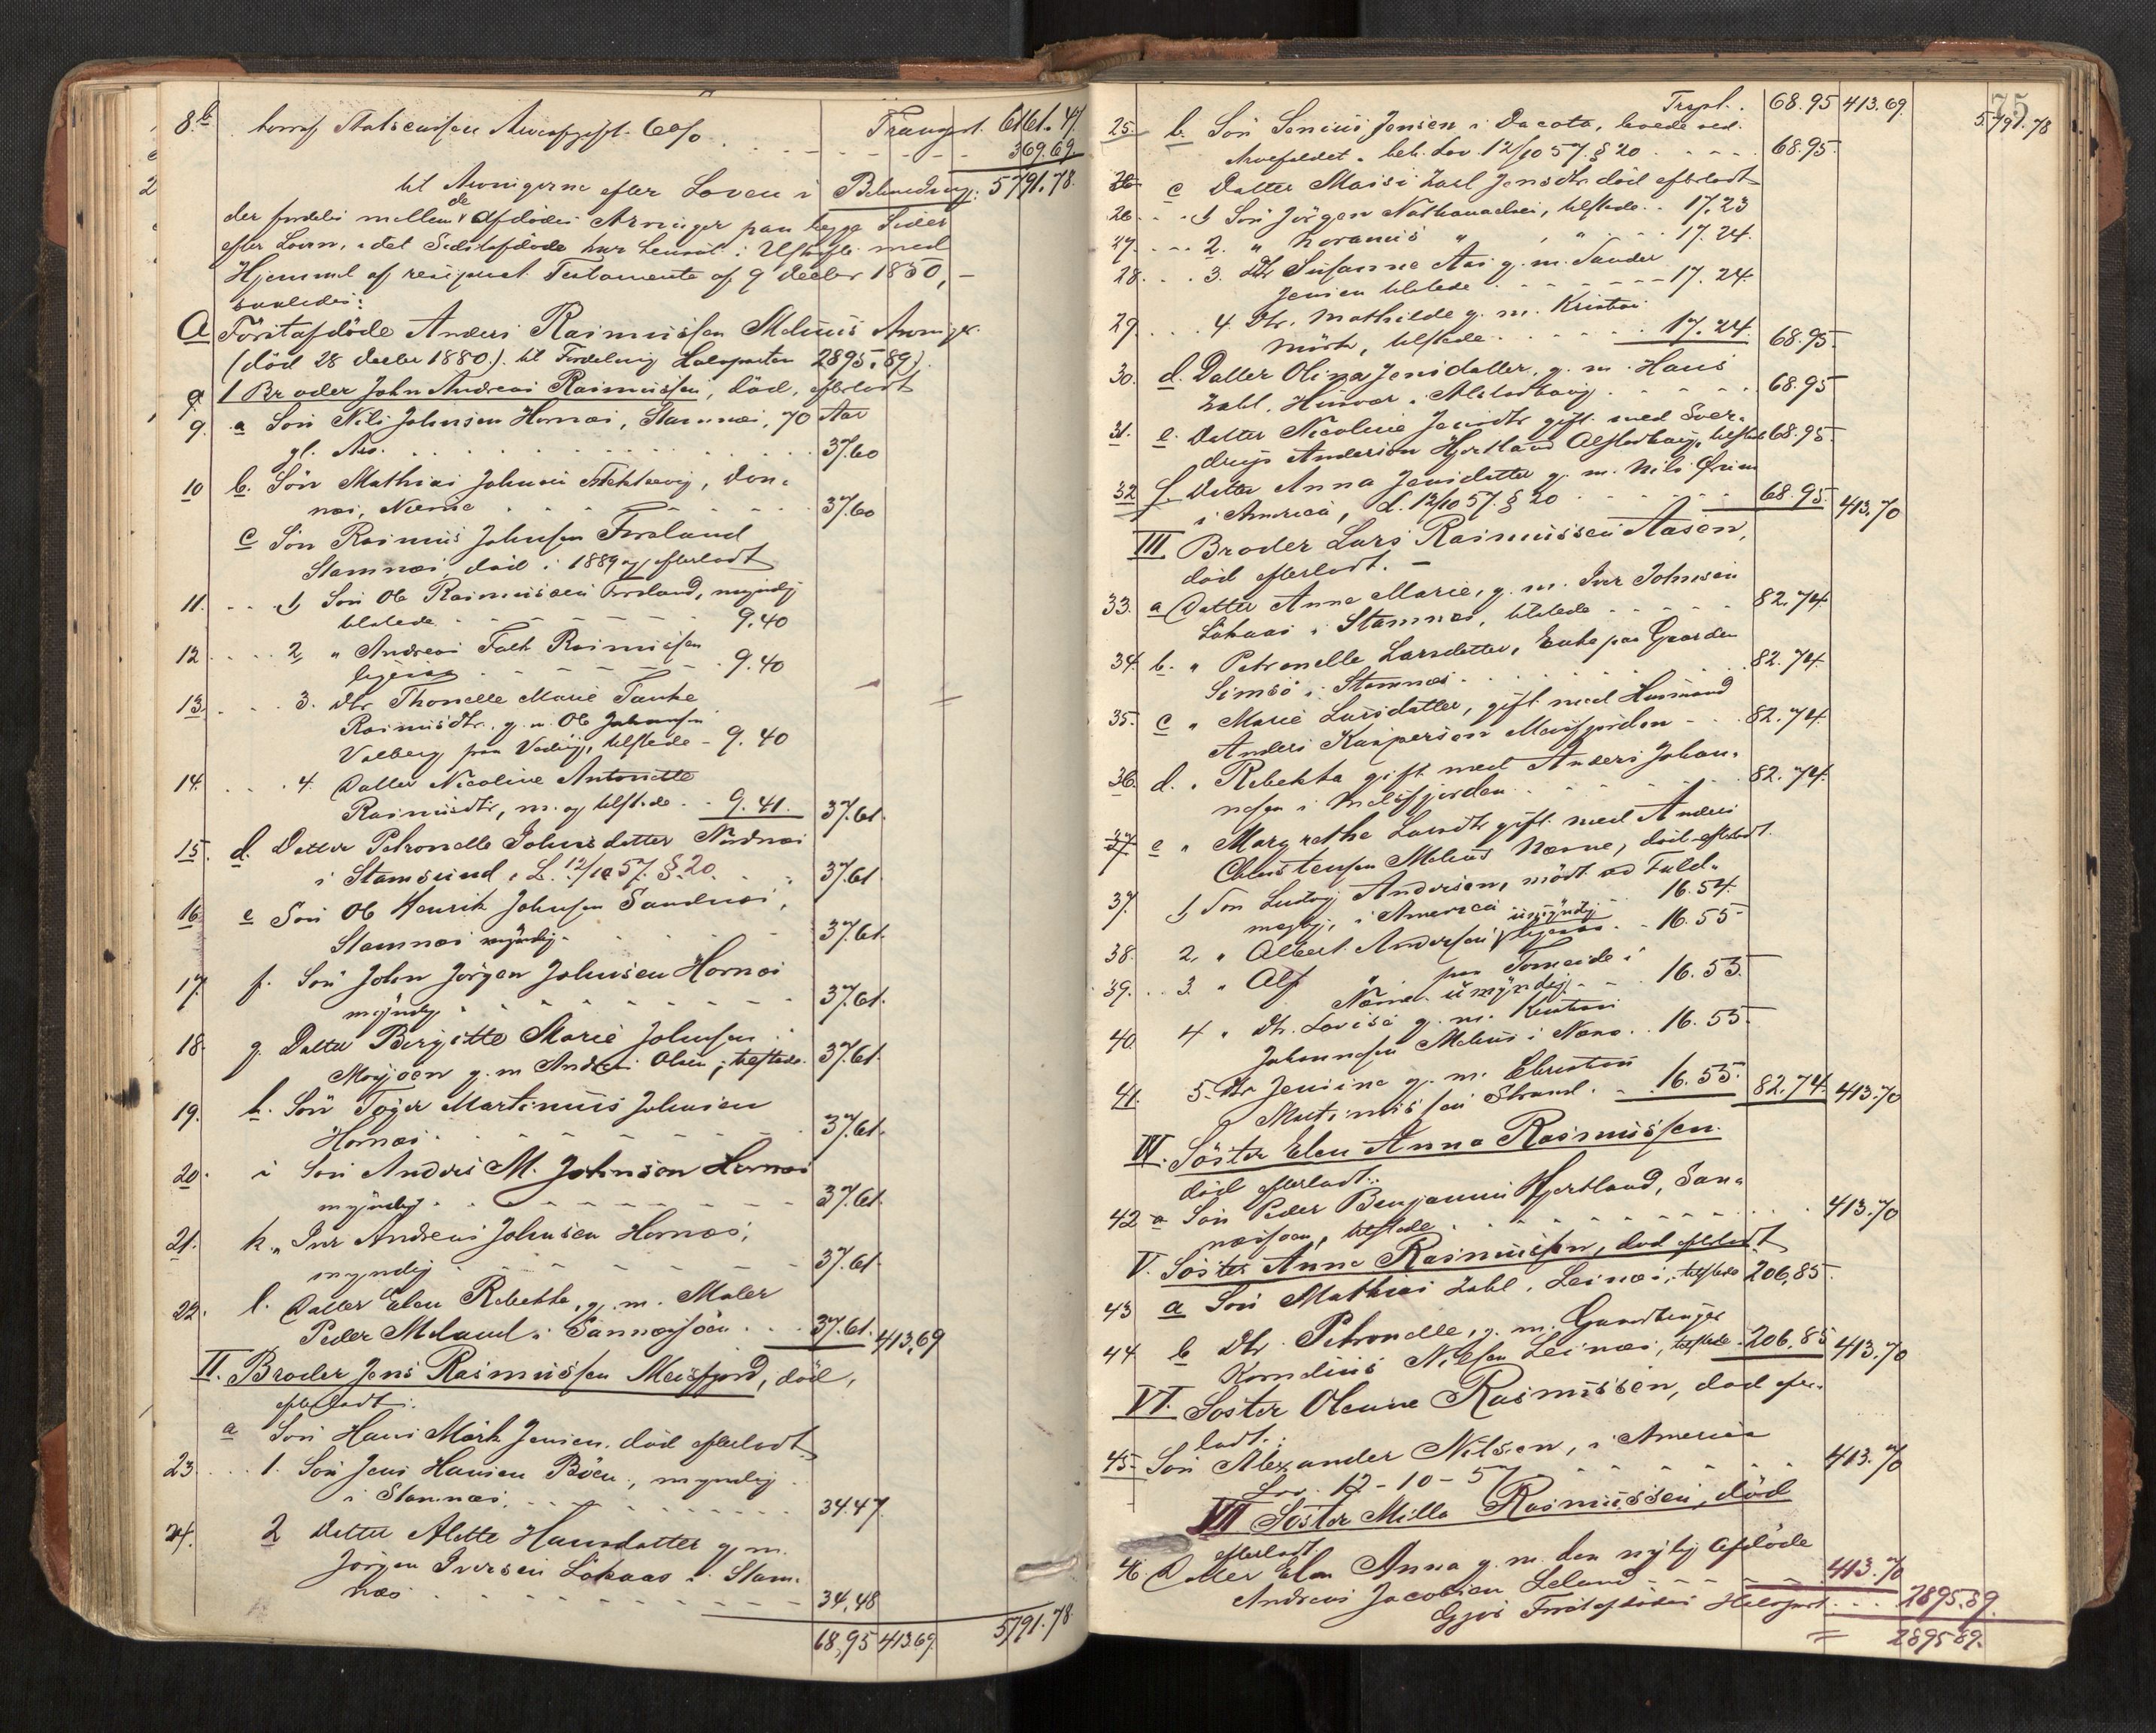 8.b Transport. 6161.47
Arveafgift 6% 369.69.
til Arvingerne efter Loven i Beholdning: 5791.78.
der fordeles mellem de Afdødes Arvinger paa begge Sider
efter Loven, i det Sidstafdøde har hensidt i Uskifte med
Hjemmel af Testamente af 9 Decbr 1850, –
saaledes:
A Førstafdøde Anders Rasmussen Arvinger.
(død 28 Decbr 1880). til Fordeling Halvparten 2895.89).
1 Broder John Andreas Rasmussen, død, efterlodt
9. a Søn Nils Johnsen Hornæs, Stamnæs, 70 Aar
gl. 37.60
10 b. Søn Mathias Johnsen, Døn-
næs, 37.60
c Søn Rasmus Johnsen Forsland
Stamnæs, død i 1889 og efterlodt
11. 1, Søn Ole Rasmussen Forsland, myndig
tilstede 9.40
12 2, " Andreas Falk Rasmussen
ligesaa 9.40
13. 3. Dtr. Thonelle Marie Tanke
Rasmusdtr. g. m. Ole Johansen
Valberg paa, tilstede – 9.40
14. 4. Datter Nicoline Antonette
Rasmusdtr, m. og tilstede 9.41. 37.61.
15. d. Datter Petronelle Johnsdatter Nordnæs
i Stamsund, L. 12/10 57. §. 20. 37.61
16. e Søn Ole Henrik Johnsen Sandnæs,
Stamnæs myndig 37.61.
17. f. Søn John Jørgen Johnsen Hornæs
myndig 37.61.
18. g. Datter Birgitte Marie Johnsen
Mosjøen g. m Andreas Olsen, tilstede. 37.61.
19. h. Søn Tøger Martinus Johnsen
Hornæs. 37.61.
20. i Søn Anders M. Johnsen Hornæs
myndig 37.61.
21. k. " Iver Andreas Johnsen Hornæs,
myndig 37.61.
22. l. Datter Elen Rebekka, g. m. Maler
Peder Meland i Sannæssjøen 37.61. 413.69
II. Broder Jens Rasmussen Meisfjord, død,
efterlodt:
a Søn Hans Mørk Jensen. død efterlodt
23. 1. Søn Jens Hansen Bøen, myndig
i Stamnæs. 34.47.
24. 2 Datter Alette Hansdatter g. m.
Jørgen Iversen Løkaas i Stam-
næs 34,48
68,95 413.69. 5791.78.
75
Trspt. 68.95 413.69. 5791.78
25. b. Søn Jensen i Dacota, levede ved
Arvefaldet. beh. Lov 12/10 57. § 20 68.95.
c Datter Maisi Zahl Jensdtr. død efterlodt
26. 1, Søn Jørgen Nathanaelsen, tilstede 17.23
27. 2. " " , " 17.24.
28. 3. Dtr Susanne g. m. Sander
Jensen tilstede 17.24.
29. 4. Dtr. Mathilde g. m. Kristen
Mørk, tilstede 17.24. 68.95.
30. d. Datter Olina Jensdatter, g. m. Hans
Zahl, i Alstadhaug 68.95
31. e. Datter Nicoline Jensdtr gift med Sver-
drup Andersen Hjertland Alstadhaug, tilstede 68.95.
32 f. Datter Anna Jensdatter g. m. Nils
i America, L. 12/10 57. § 20 68.95. 413.70
III. Broder Lars Rasmussen Aasen,
død efterlodt. –
33. a Datter Anne Marie, g. m. Iver Johnsen
Løkaas i Stamnæs, tilstede 82.74
34. b. " Petronelle Larsdatter, Enke paa Gaarden
Simsø i Stamnæs 82.74.
35. c " Marie Larsdatter, gift med Husmand
Anders Kaspersen Meisfjorden 82.74.
36. d. " Rebekka gift med Anders Johan-
nesen i Meisfjorden 82.74.
e " Margrethe Larsdtr gift med Anders
Christensen Nesne, død efterlodt.
37. 1, Søn Ludvig Andersen, mødt ved Fuld-
mægtig, i America 16.54.
38. 2, " Albert Andersen, umyndig ligesaa 16.55
39. 3. " Alf " paa Tomeide i
Næsne umyndig 16.55.
40. 4 " Dtr. Lovise g. m. Kristen
Johannesen i 16.55.
41. 5. Dtr Jensine g. m. Christen
Martinussen Strand 16.55. 82.74. 413.70
IV. Søster Elen Anna Rasmussen.
død efterlodt:
42 a Søn Peder Benjamin Hjertland, San-
næssjøen, tilstede 413.70
V. Søster Anne Rasmussen, død efterlodt
43 a Søn Mathias Zahl, Leinæs, tilstede 206,85.
44 b Dtr. Petronelle, g. m. Gaardbruger
Kornelius Nilsen Leinæs, tilstede 206,85 413.70
VI. Søster Olenine Rasmussen, død efter-
lodt:
45. Søn Alexander Nilsen, i America
Lov. 12–10–57 413.70
VII Søster Milla Rasmussen, død
efterlodt.
46. Datter Elen Anna g. m. den nylig afdøde
Andreas Jacobsen Leland 413.70
Gjør Førstafdødes Halvpart 2895.89.
= 2895 89.